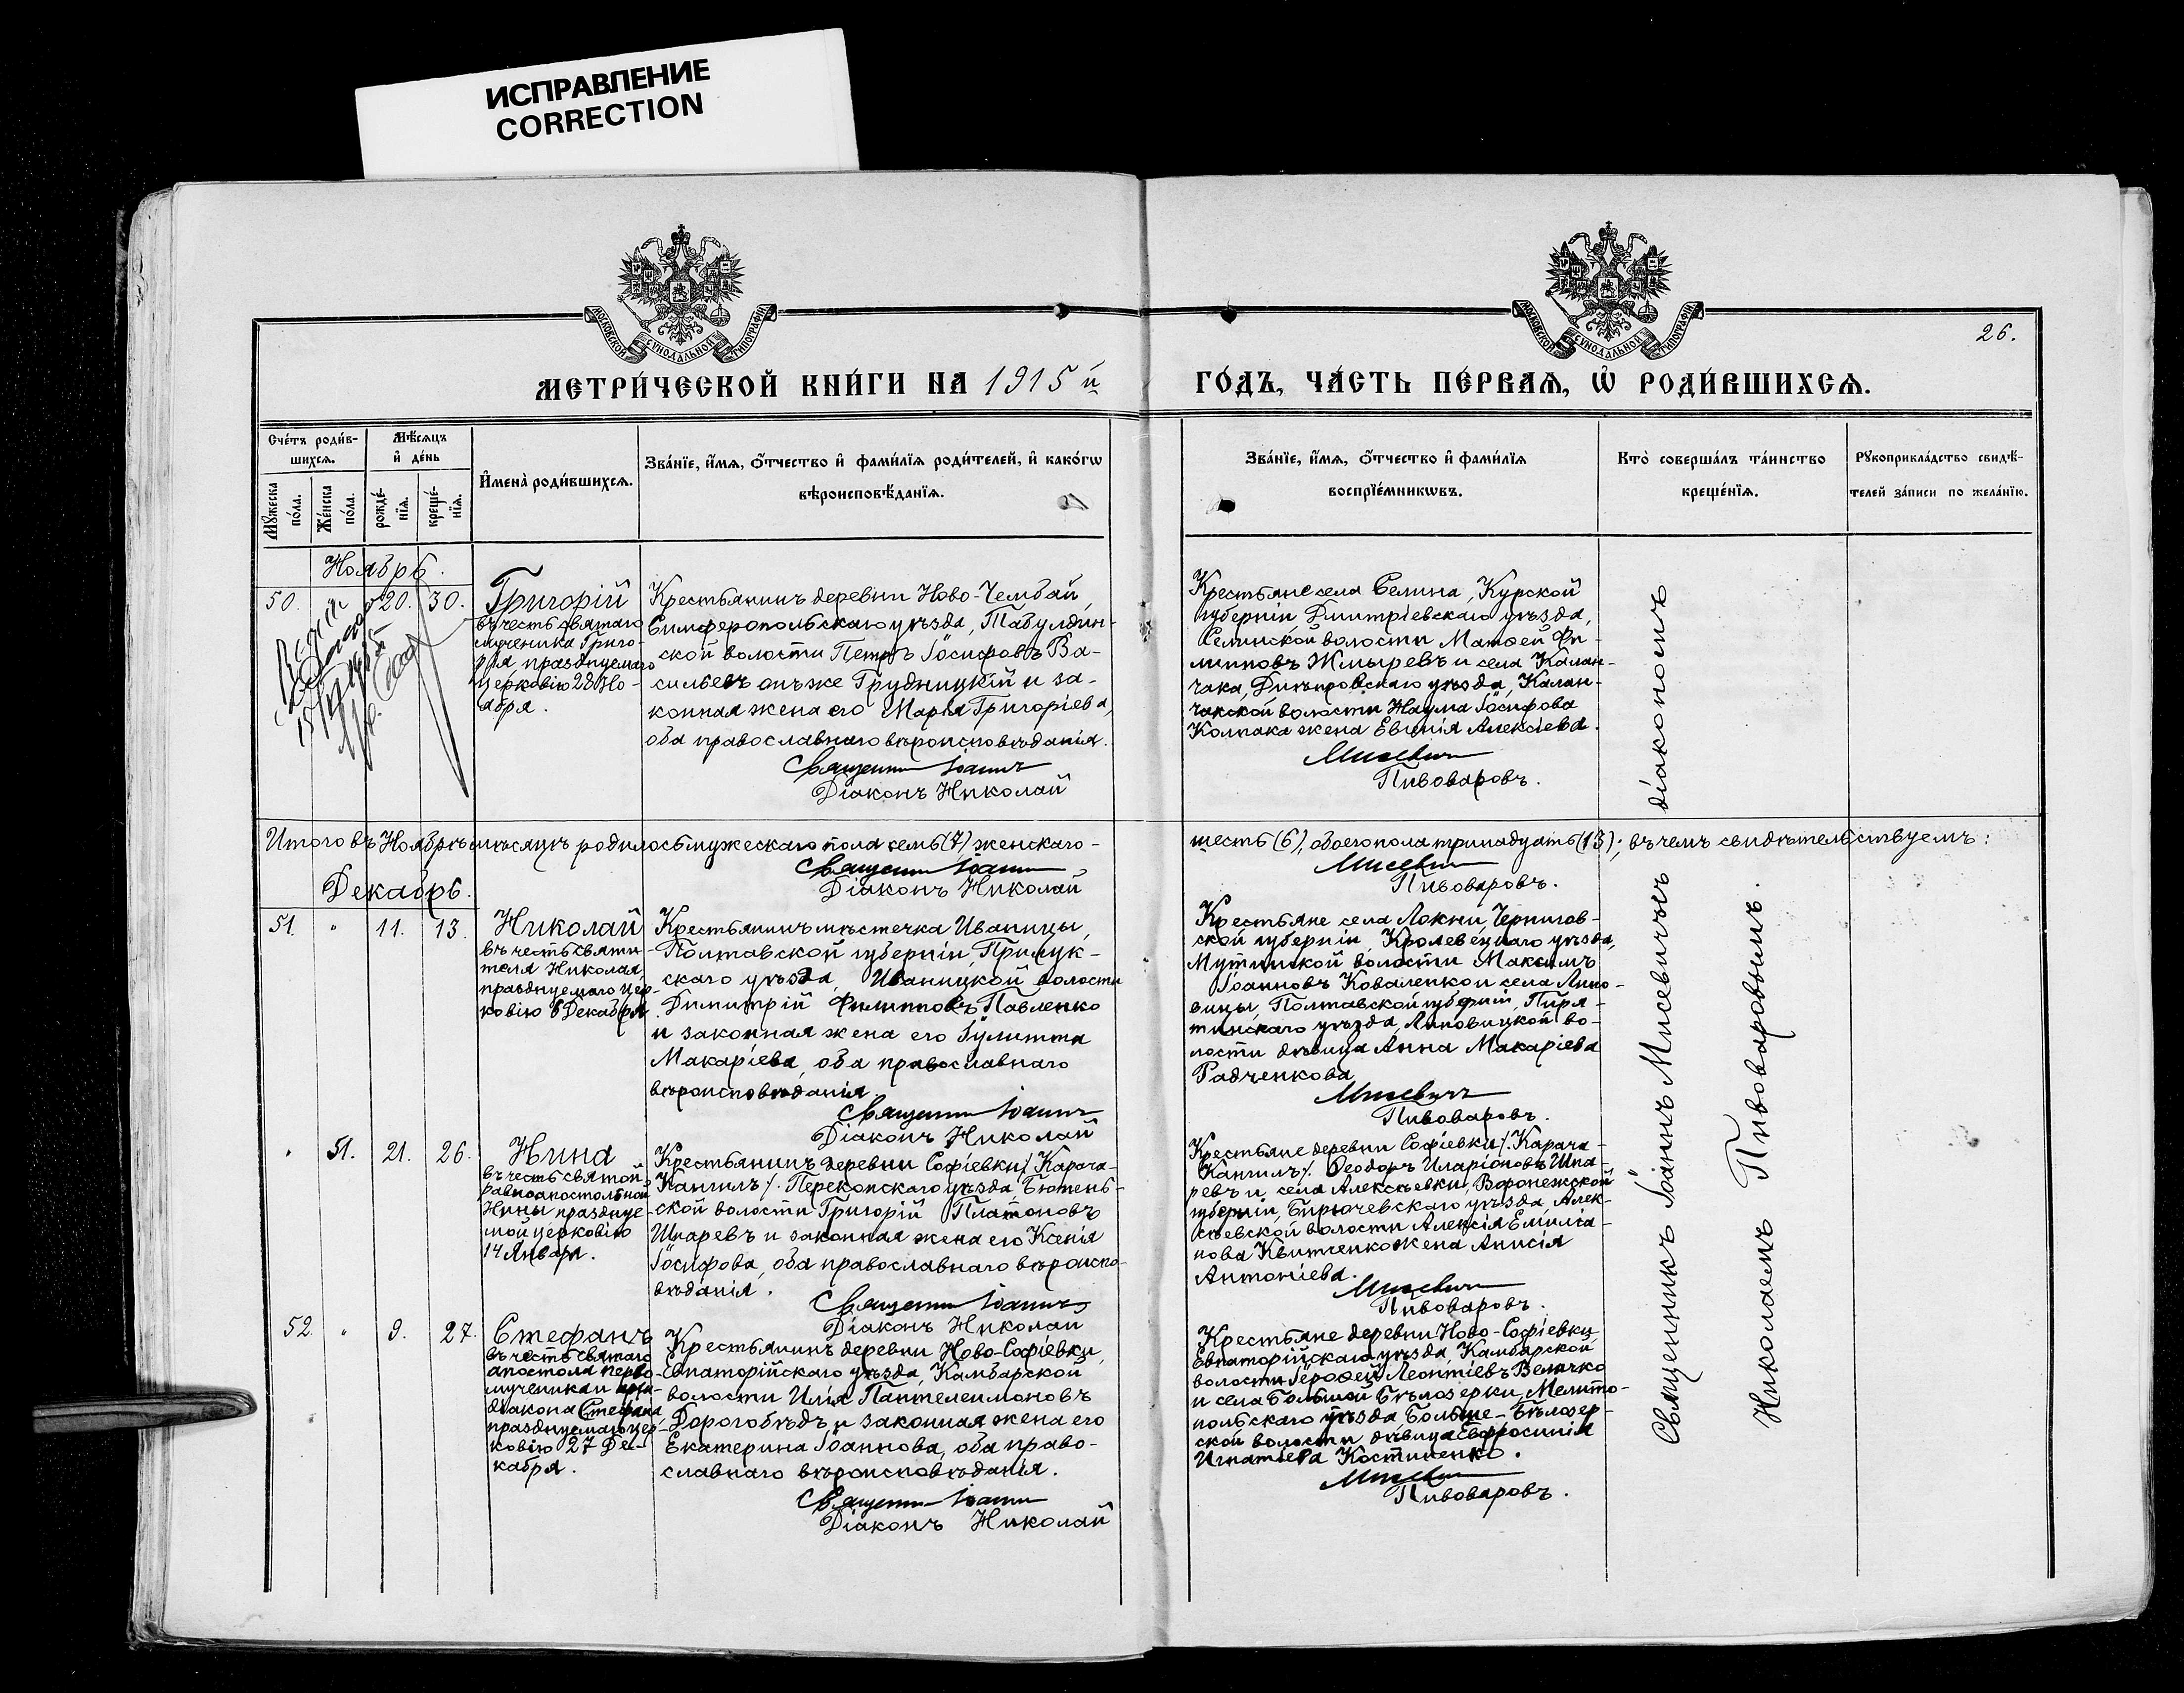 ИСПРАВЛЕНИЕ
CORRECTION
МОСКОВСКОЙ СѴНОДАЛЬНОЙ ТИПОГРАФІИ
МОСКОВСКОЙ СѴНОДАЛЬНОЙ ТИПОГРАФІИ
26.
МЕТРИ́ЧЕСКОЙ КНИ́ГИ НА 1915 й
ГО́ДЪ, ЧА́СТЬ ПЕ́РВАѦ, Ѡ҆ РОДИ́ВШИХСѦ.
Сче́тъ роди́в-
шихсѧ.
Мѣ́сѧцъ
и҆ де́нь
Мꙋ́жеска
по́ла.
Же́нска
по́ла.
рожде́-
нїѧ.
креще́-
нїѧ.
И҆мена̀ роди́вшихсѧ.
Зва́нїе, и҆́мѧ, ѻ҆́тчество и҆ фами́лїѧ роди́телей, и҆ како́гѡ
вѣроисповѣ́данїѧ.
Зва́нїе, и҆́мѧ, ѻ҆́тчество и҆ фами́лїѧ
воспрїе́мникѡвъ.
Кто̀ соверша́лъ та́инство
креще́нїѧ.
Рꙋкоприкла́дство свидѣ́-
телей за́писи по жела́нїю.
Ноябрь.
50.
20.
30.
Григорій
въ честь святаго
мученика Григо-
рія празднуемаго
церковію 28 Но-
ября.
Крестьянинъ деревни Ново-Чембай,
Симферопольскаго уѣзда, Табулдин-
ской волости Петръ Іосифовъ Ва-
сильевъ онъ же Грудницкій и за-
конная жена его Марѳа Григоріева,
оба православнаго вѣроисповѣданія.
Священникъ Іоаннъ
Діаконъ Николай
Крестьяне села Селина, Курской
губерніи Дмитріевскаго уѣзда,
Селинской волости Матѳей Фи-
липповъ Жмыревъ и села Калан-
чака, Днѣпровскаго уѣзда, Калан-
чакской волости Наума Іосифова
Колпака жена Евгенія Алексіева.
Мисевичъ
Пивоваровъ.
Итого въ Ноябрѣ мѣсяцѣ родилось мужескаго пола семь (7) женскаго-
шесть (6), обоего пола тринадцать (13); въ чемъ свидѣтельствуемъ:
Священникъ Іоаннъ
Діаконъ Николай
Мисевичъ
Пивоваровъ.
Декабрь.
51.
"
11.
13.
Николай
въ честь святи-
теля Николая,
празднуемаго цер-
ковію 6 Декабря.
Крестьянинъ мѣстечка Иваницы,
Полтавской губерніи, Прилук-
скаго уѣзда, Иваницкой волости
Димитрій Филипповъ Павленко
и законная жена его Іулитта
Макаріева, оба православнаго
вѣроисповѣданія.
Священникъ Іоаннъ
Діаконъ Николай
Крестьяне села Локни, Чернигов-
ской губерніи, Кролевецкаго уѣзда,
Мутинской волости Максимъ
Іоанновъ Коваленко и села Липо-
вицы, Полтавской губерніи, Пиря-
тинскаго уѣзда, Липовицкой во-
лости дѣвица Анна Макаріева
Радченкова
Мисевичъ
Пивоваровъ.
"
51.
21.
26.
Нина
въ честь святой
равноапостольной
Нины праздууе-
мой церковію
14 Января.
Крестьянинъ деревни Софіевки /Карача-
Кангилъ/. Перекопскаго уѣзда, Бютень-
ской волости Григорій Платоновъ
Шпаревъ и законная жена его Ксенія
Іосифова, оба православнаго вѣроиспо-
вѣданія.
Священникъ Іоаннъ
Діаконъ Николай
Крестьяне деревни Софіевки /.Карача-
Кангилъ/. Ѳеодоръ Иларіоновъ Шпа-
ревъ и села Алексѣевки, Воронежской
губерніи, Бирючевскаго уѣзда, Алек-
сѣевской волости Алексія Емиліа-
нова Квитченко жена Анисія
Антоніева.
Мисевичъ
Пивоваровъ.
52.
"
9.
27.
Стефанъ
въ честь святаго
апостола перво-
мученика и архи-
діакона Стефана,
празднуемаго цер-
ковію 27 Де-
кабря.
Крестьянинъ деревни Ново-Софіевки,
Евпаторійскаго уѣзда, Камбарской
волости Илія Пантелеимоновъ
Дорогобѣдъ и законная жена его
Екатерина Іоаннова, оба право-
славнаго вѣроисповѣданія.
Священникъ Іоаннъ
Діаконъ Николай
Крестьяне деревни Ново-Софіевки,
Евпаторійскаго уѣзда, Камбарской
волости Іероѳей Леонтіевъ Величко
и села Большой Бѣлозерки, Мелито-
польскаго уѣзда, Больше-Бѣлозер-
ской волости дѣвица Евфросинія
Игнатіева Костиненко.
Мисевичъ
Пивоваровъ.
Священникъ Іоаннъ Мисевичъ діакономъ
Николаемъ Пивоваровымъ.